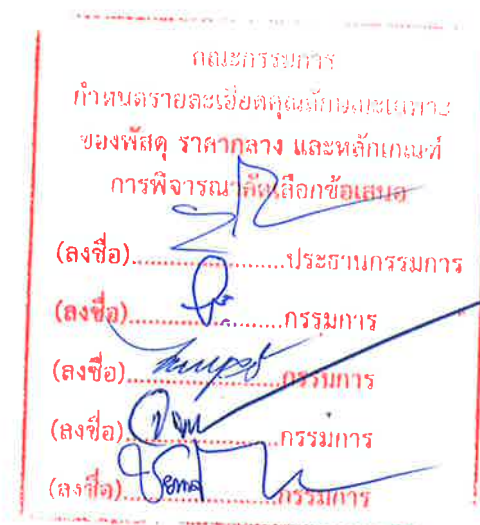 คณะกรรมการ
กำหนดรายละเอียดคุณลักษณะเฉพาะ
ของพัสดุ ราคากลาง และหลักเกณฑ์
การพิจารณาคัดเลือกข้อเสนอ
(ลงชื่อ)......................ประธานกรรมการ
(ลงชื่อ)......................กรรมการ
(ลงชื่อ)......................กรรมการ
(ลงชื่อ)......................กรรมการ
(ลงชื่อ)......................กรรมการ